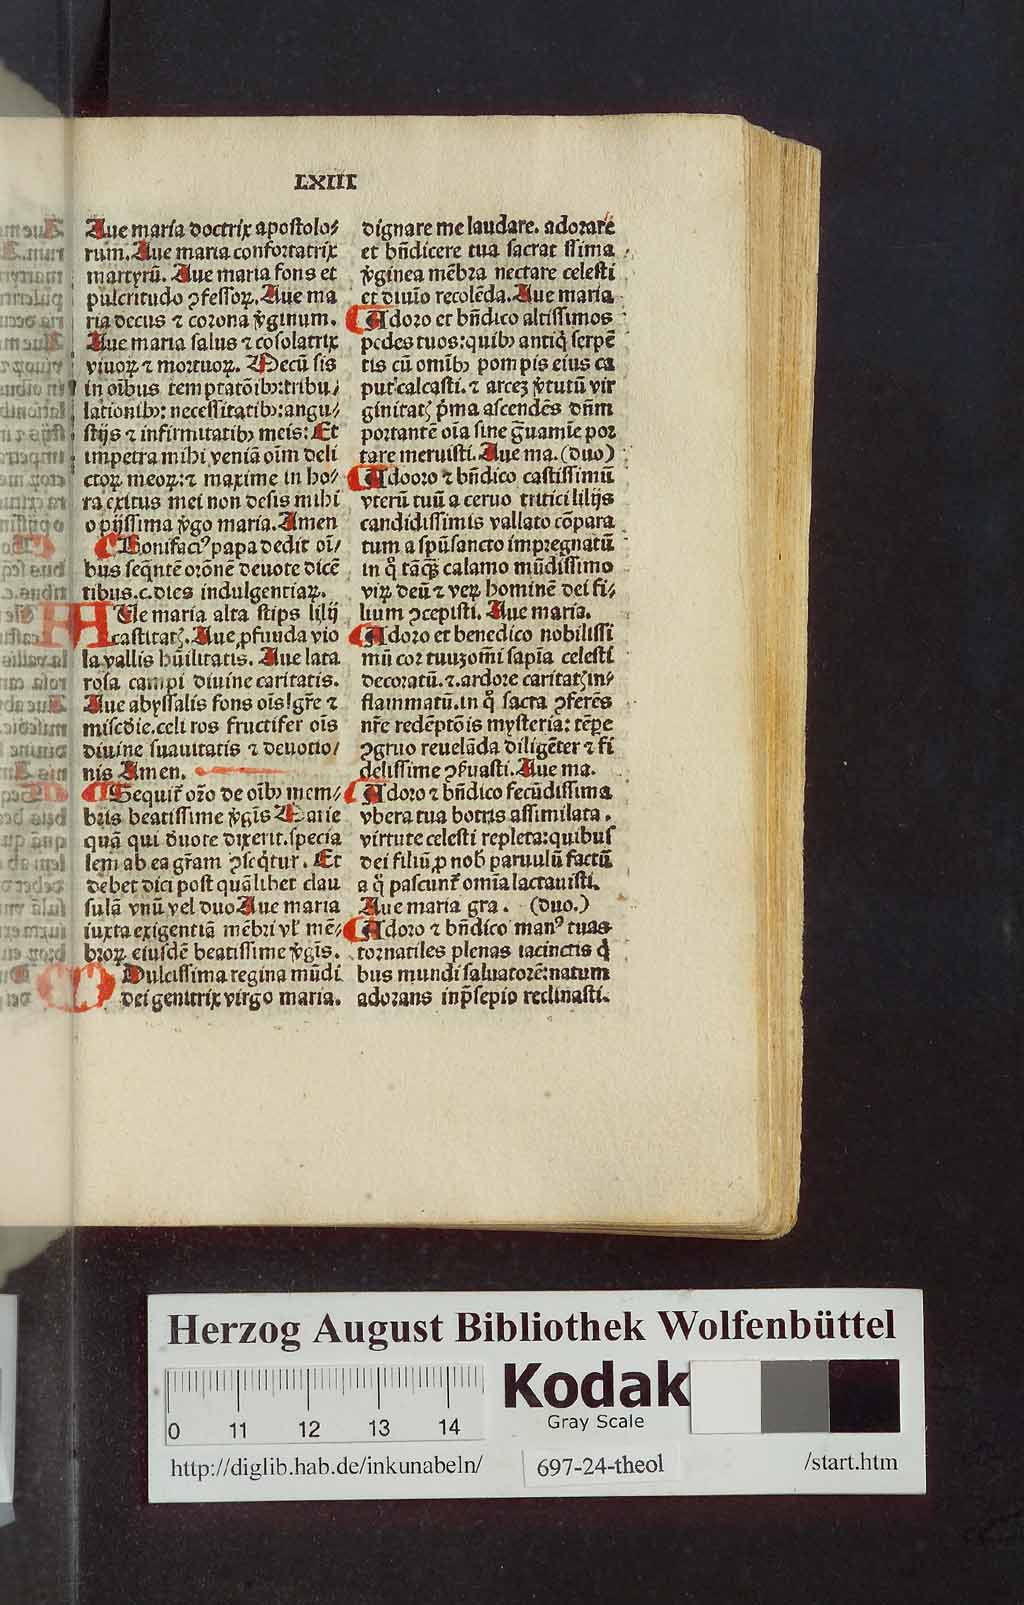 LXIII
Aue maria doctrix apostolo⸗
rum. Aue maria confortatrix
martyrũ. Aue maria fons et
pulcritudo ꝯfessoꝝ. Aue ma
ria decus ⁊ corona v̾ginum.
Aue maria salus ⁊ cõsolatrix
viuoꝝ ⁊ mortuoꝝ. Mecũ sis
in oĩbus temptatõibꝰ: tribu⸗
lationibꝰ: necessitatibꝰ: angu⸗
stijs ⁊ infirmitatibꝰ meis: Et
impetra mihi veniã oĩm deli
ctoꝝ meoꝝ: ⁊ maxime in ho⸗
ra exitus mei non desis mihi
o pijssima v̾go maria. Amen
Bonifaciꝰ papa dedit oĩ⸗
bus seq̃ntẽ orõnẽ deuote dicẽ
tibus .c. dies indulgentiaꝝ.
AUe maria alta stips lilij
castitatꝭ. Aue ꝓfunda vio
la vallis hũilitatis. Aue lata
rosa campi diuine caritatis.
Aue abyssalis fons oĩs grẽ ⁊
miscd̃ie. celi ros fructifer oĩs
diuine suauitatis ⁊ deuotio⸗
nis Amen.
Sequit̃ orõ de oĩbꝰ mem⸗
bris beatissime v̾gĩs Marie
quã qui d̃uote dixerit. specia
lem ab ea gr̃am ꝯseq̃tur. Et
debet dici post quãlibet clau
sulã vnũ vel duo Aue maria
iuxta exigentiã mẽbri vl̃ mẽ⸗
broꝝ eiusdẽ beatissime v̾gĩs.
O Dulcissima regina mũdi
dei genitrix virgo maria.
dignare me laudare. adorare
et bñdicere tua sacratissima
v̾ginea mẽbra nectare celesti
et diuĩo recolẽda. Aue maria
Adoro et bñdico altissimos
pedes tuos: quibꝰ antiq̃ serpẽ
tis cũ omĩbꝰ pompis eius ca
put calcasti. ⁊ arceꝫ v̾tutũ vir
ginitatꝭ p̃ma ascendẽs dñm
portantẽ oĩa sine g̃uamĩe por
tare meruisti. Aue ma. (duo)
Adooro ⁊ bñdico castissimũ
vterũ tuũ aceruo tritici lilijs
candidissimis vallato cõpara
tum a spũsancto impregnatũ
in q̊ tãq̃ꝫ calamo mũdissimo
viꝝ deũ ⁊ veꝝ hominẽ dei fi⸗
lium ꝯcepisti. Aue maria.
Adoro et benedico nobilissi
mũ cor tuuꝫ om̃i sapĩa celesti
decoratũ. ⁊. ardore caritatꝭ in⸗
flammatũ. in q̊ sacra ꝯferẽs
nr̃e redẽptõis mysteria: tẽpe
ꝯgruo reuelãda diligẽter ⁊ fi
delissime ꝯs̃uasti. Aue ma.
Adoro ⁊ bñdico fecũdissima
vbera tua botris assimilata.
virtute celesti repleta: quibus
dei filiũ ꝓ nob̃ paruulũ factũ
a q̊ pascunt̃ omĩa lactauisti.
Aue maria gra. (duo.)
Adoro ⁊ bñdico manꝰ tuas
tornatiles plenas iacinctis q̃
bus mundi saluatorẽ: natum
adorans inp̃sepio reclinasti.
Herzog August Bibliothek Wolfenbüttel
Kodak
Gray Scale
0 11 12 13 14
http://diglib.hab.de/inkunabeln/ 697-24-theol /start.htm